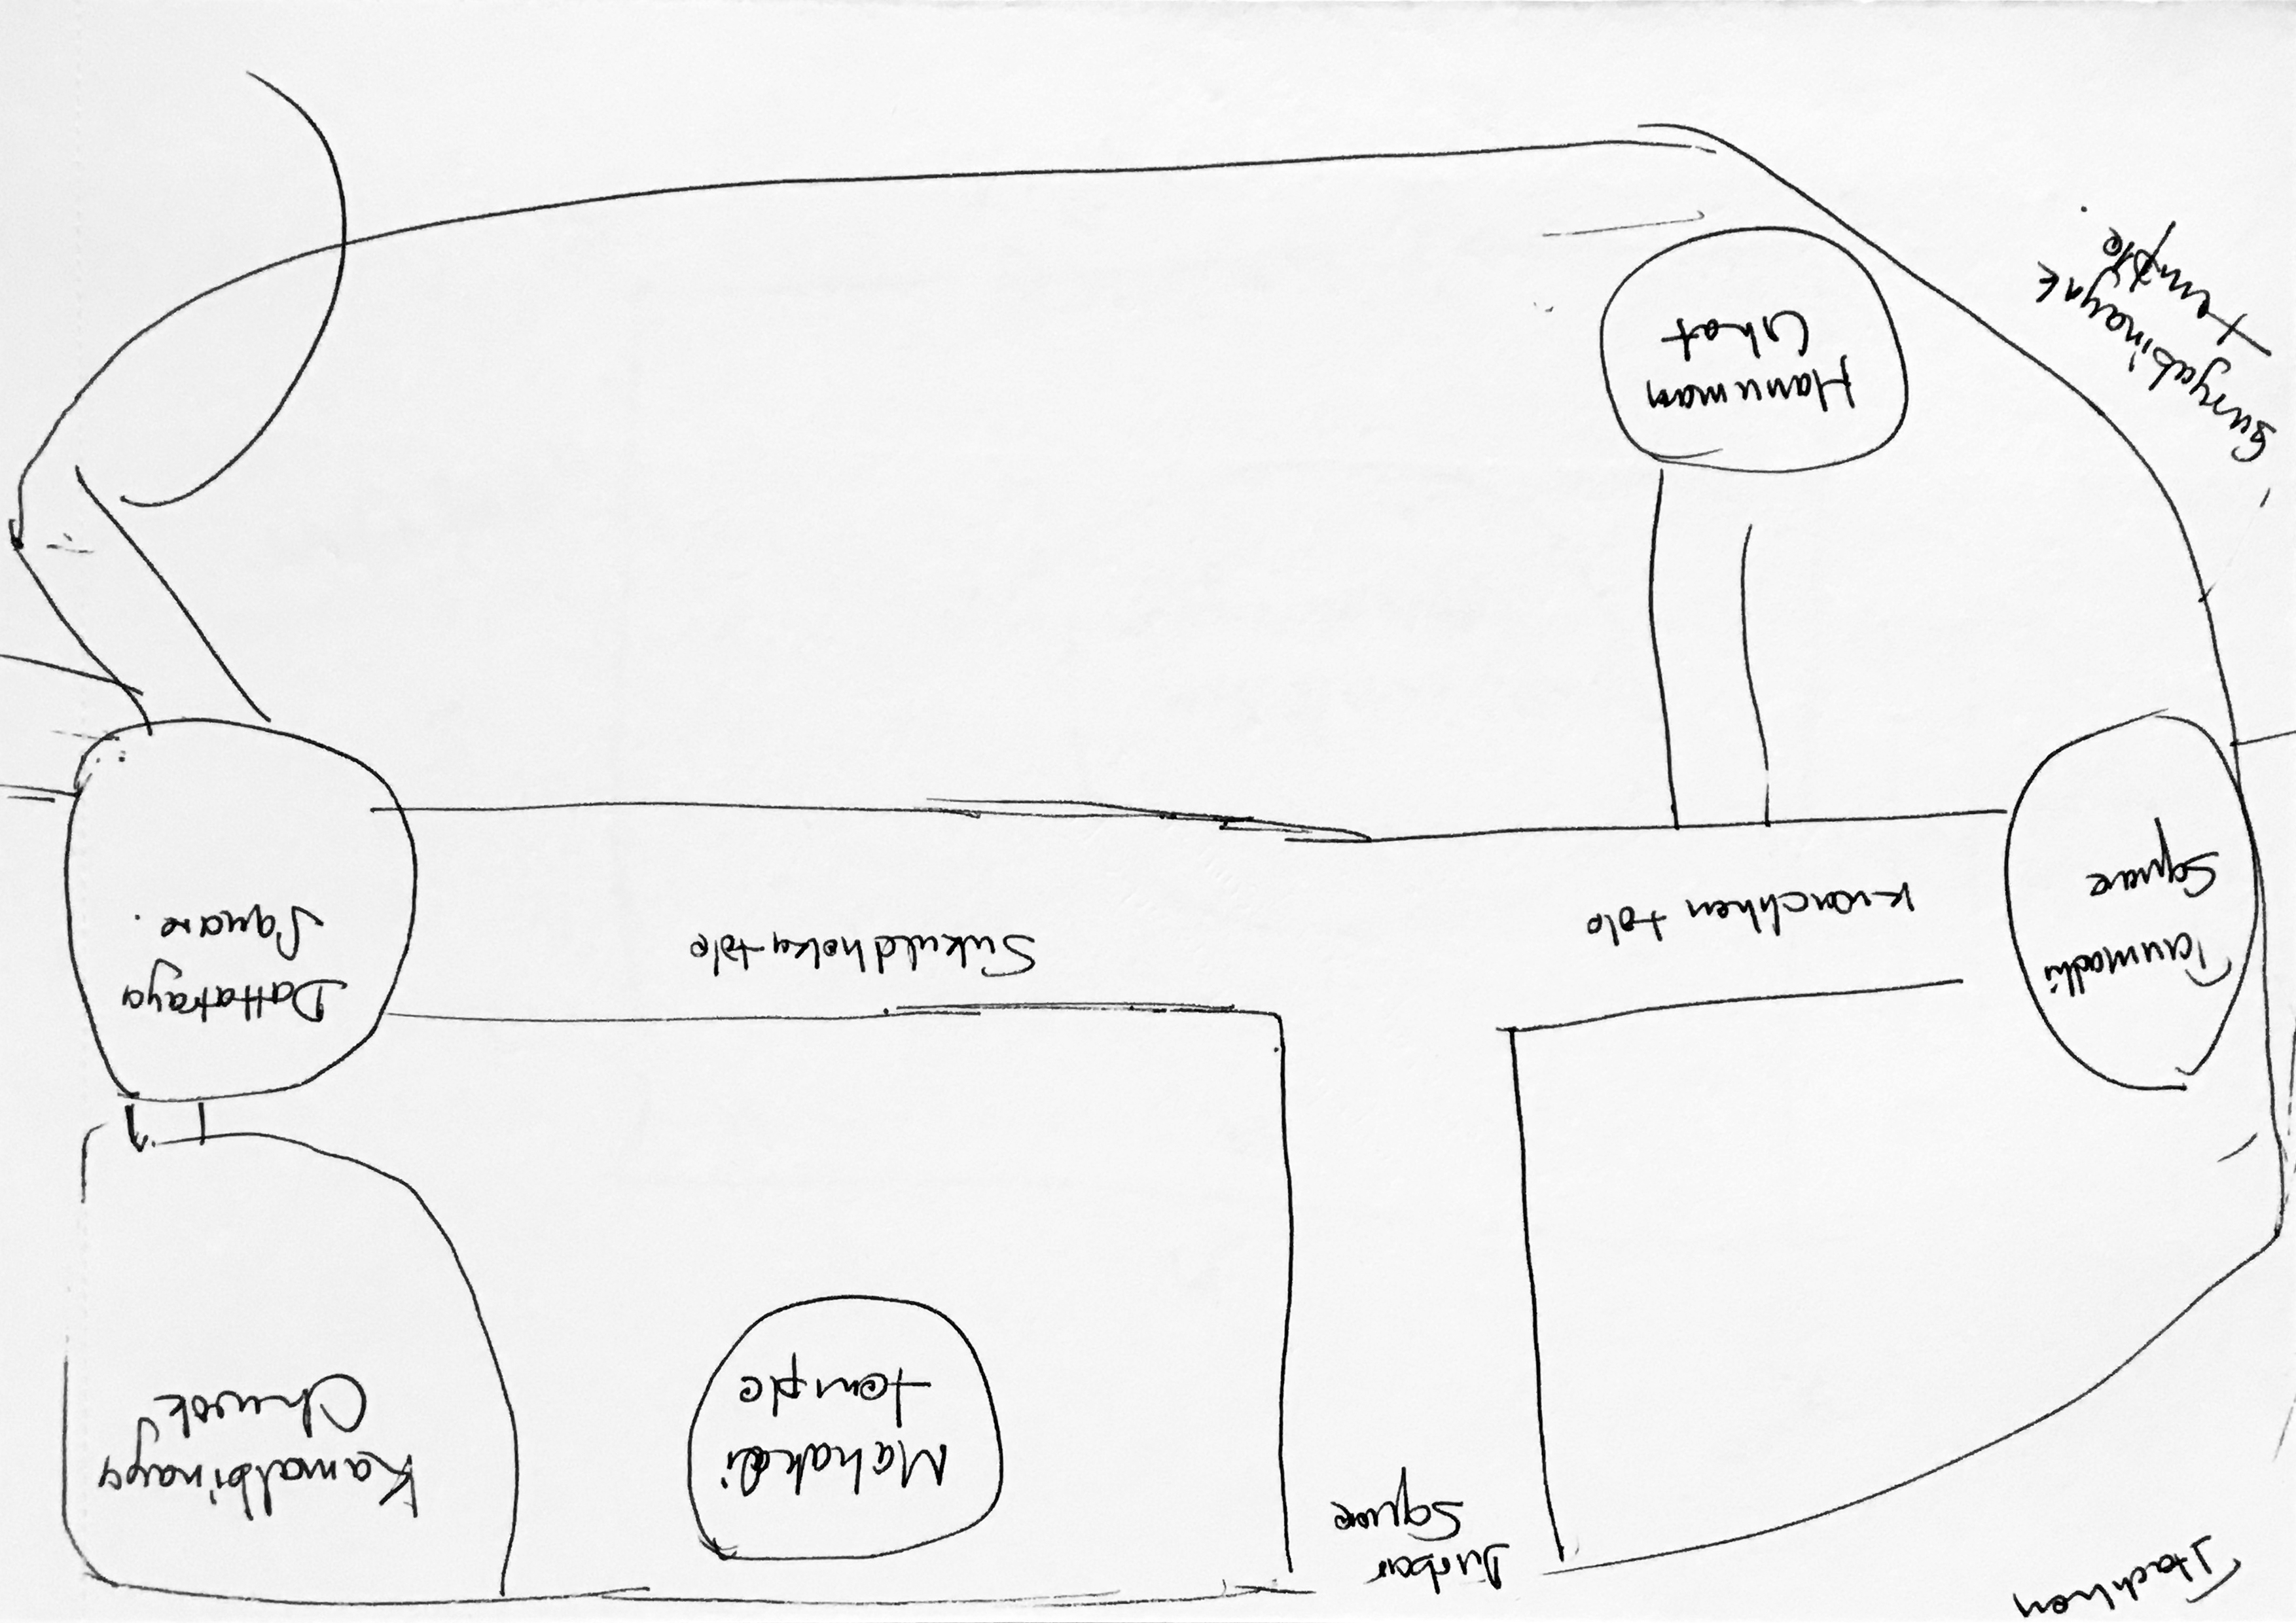 Itachhen
Durbar
Square
Mahakali
temple
Kamalbinaya
Chwok
Taumadhi
Square
Kwachhen tole
Sukuldhoka tole
Dattatraya
Square.
Hanuman
Ghat
Suryabinayak
temple.